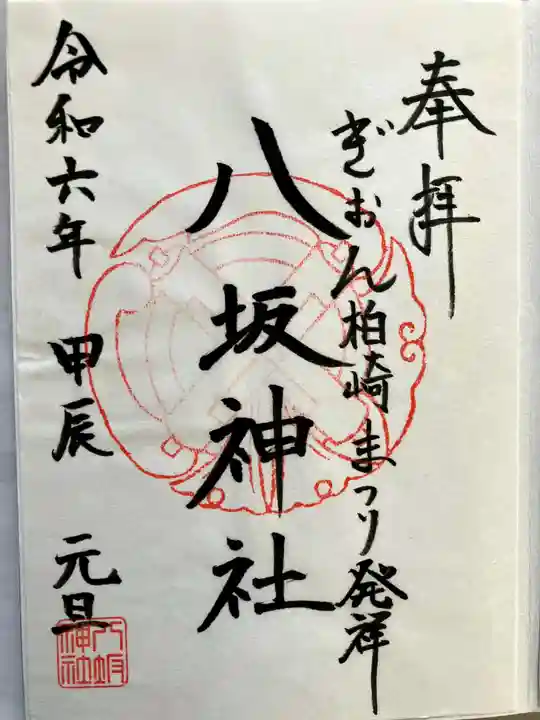 奉拝
ぎおん柏崎まつり発祥
八坂神社
令和六年 甲辰 元旦
八坂
神社